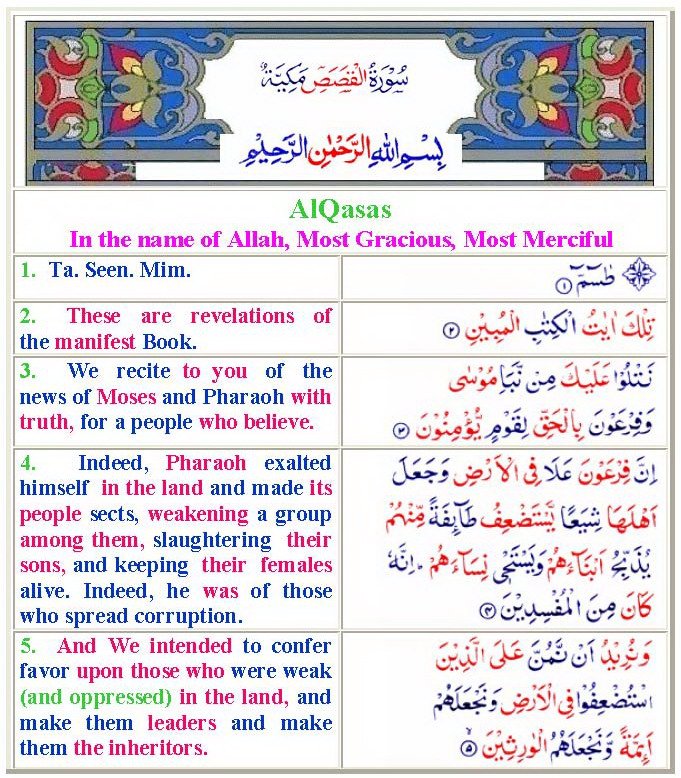 سُوْرَةُ الْقَصَصِ مَكِّيَّةٌ
بِسْمِ اللهِ الرَّحْمٰنِ الرَّحِيْمِ
AlQasas
In the name of Allah, Most Gracious, Most Merciful
1. Ta. Seen. Mim.
طٰسٓمّٓ ۝١
2. These are revelations of
the manifest Book.
تِلْكَ اٰيٰتُ الْكِتٰبِ الْمُبِيْنِ ۝٢
3. We recite to you of the
news of Moses and Pharaoh with
truth, for a people who believe.
نَتْلُوْا عَلَيْكَ مِنْ نَّبَاِ مُوْسٰى
وَفِرْعَوْنَ بِالْحَقِّ لِقَوْمٍ يُّؤْمِنُوْنَ ۝٣
4. Indeed, Pharaoh exalted
himself in the land and made its
people sects, weakening a group
among them, slaughtering their
sons, and keeping their females
alive. Indeed, he was of those
who spread corruption.
اِنَّ فِرْعَوْنَ عَلَا فِى الْاَرْضِ وَجَعَلَ
اَهْلَهَا شِيَعًا يَّسْتَضْعِفُ طَآئِفَةً مِّنْهُمْ
يُذَبِّحُ اَبْنَآءَهُمْ وَيَسْتَحْىٖ نِسَآءَهُمْ ؕ اِنَّهٗ
كَانَ مِنَ الْمُفْسِدِيْنَ ۝٤
5. And We intended to confer
favor upon those who were weak
(and oppressed) in the land, and
make them leaders and make
them the inheritors.
وَنُرِيْدُ اَنْ نَّمُنَّ عَلَى الَّذِيْنَ
اسْتُضْعِفُوْا فِى الْاَرْضِ وَنَجْعَلَهُمْ
اَئِمَّةً وَّنَجْعَلَهُمُ الْوٰرِثِيْنَ ۝٥